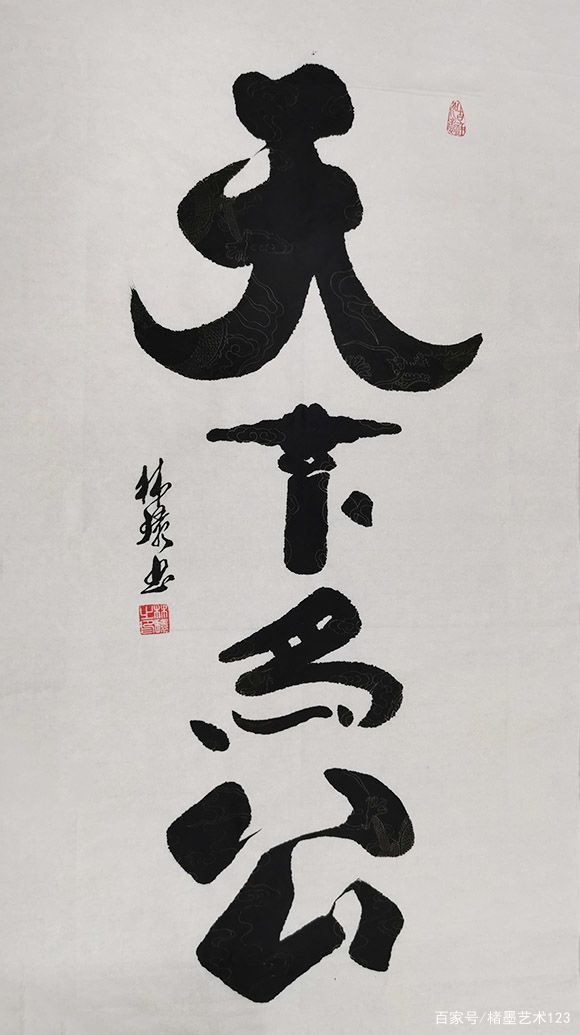 天下為公
林璟书
百家号/楮墨艺术123